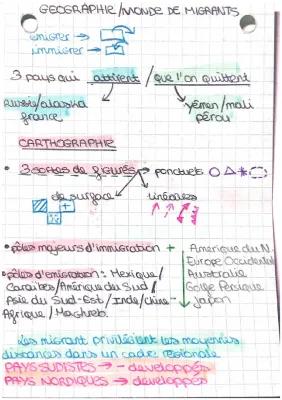 GEOGRAPHIE/MONDE DE MIGRANTS
émigrer →
immigrer →
3 pays qui attirent / que l'on quittent
russie/alaska yémen/mali
france pérou
CARTHOGRAPHIE
• 3 sortes de figurés → ponctuels
de surface linéaires
• pôles majeurs d'immigration + Amérique du N.
• pôles d'émigration : Mexique/ Europe Occidental
Caraïbes/Amérique du Sud/ Australie
Asie du Sud-Est/Inde/Chine- Golfe Persique
Afrique/Maghreb. Japon
Les migrant privilégient les moyennes
distances dans un cadre régionale
PAYS SUDISTES → - développés
PAYS NORDIQUES → développés